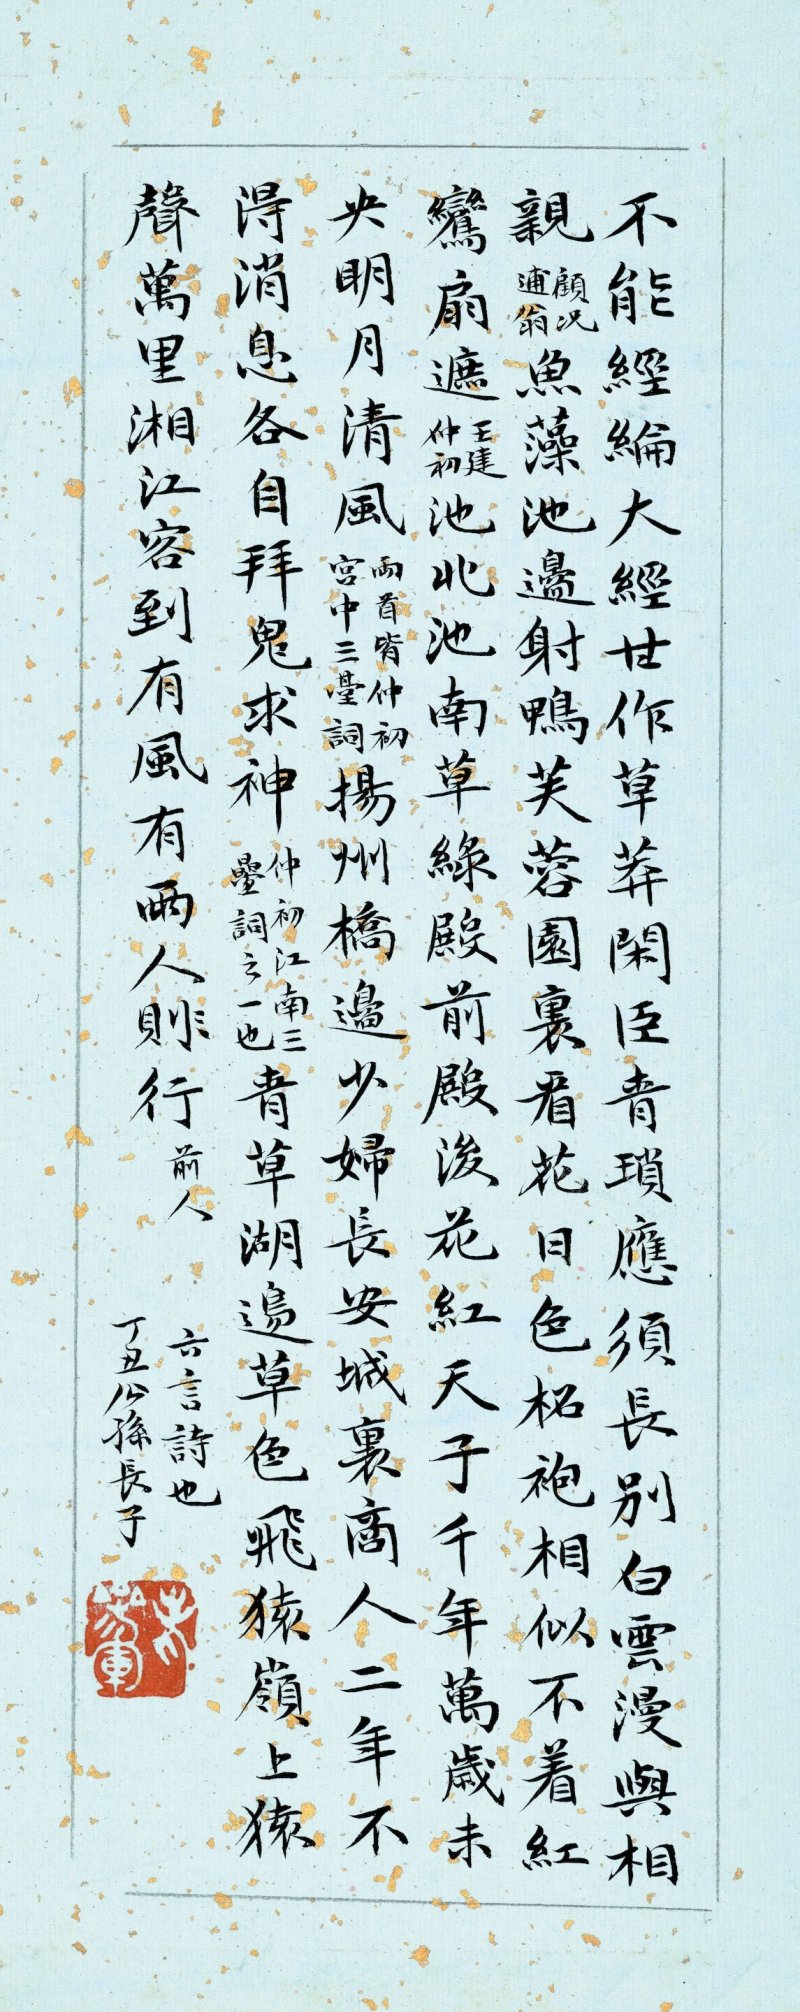 不能經綸大經甘作草莽閑臣青瑣應須長別白雲漫與相
親顧况逋翁魚藻池邊射鴨芙蓉園裏看花日色柘袍相似不着紅
鸞扇遮王建仲初池北池南草綠殿前殿後花紅天子千年萬歲未
央明月清風兩首皆仲初宮中三臺詞揚州橋邊少婦長安城裏商人二年不
得消息各自拜鬼求神仲初江南三臺詞之一也青草湖邊草色飛猿嶺上猿
聲萬里湘江客到有風有雨人行前人
六言詩也
丁丑公孫長子